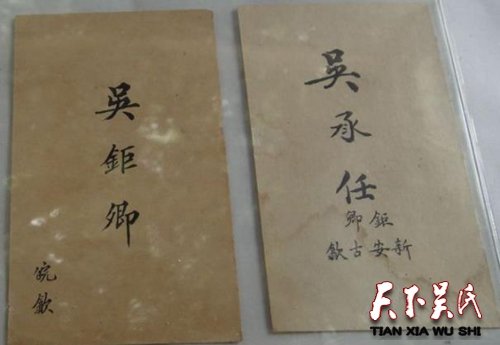 吳鉅卿
皖歙
吳承任
鉅卿
新安古歙
天下吴氏
TIAN XIA WU SHI